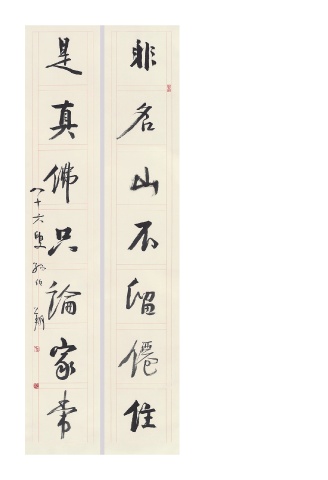 非名山不留僊住
是真佛只論家常
八十六叟孫伯翔